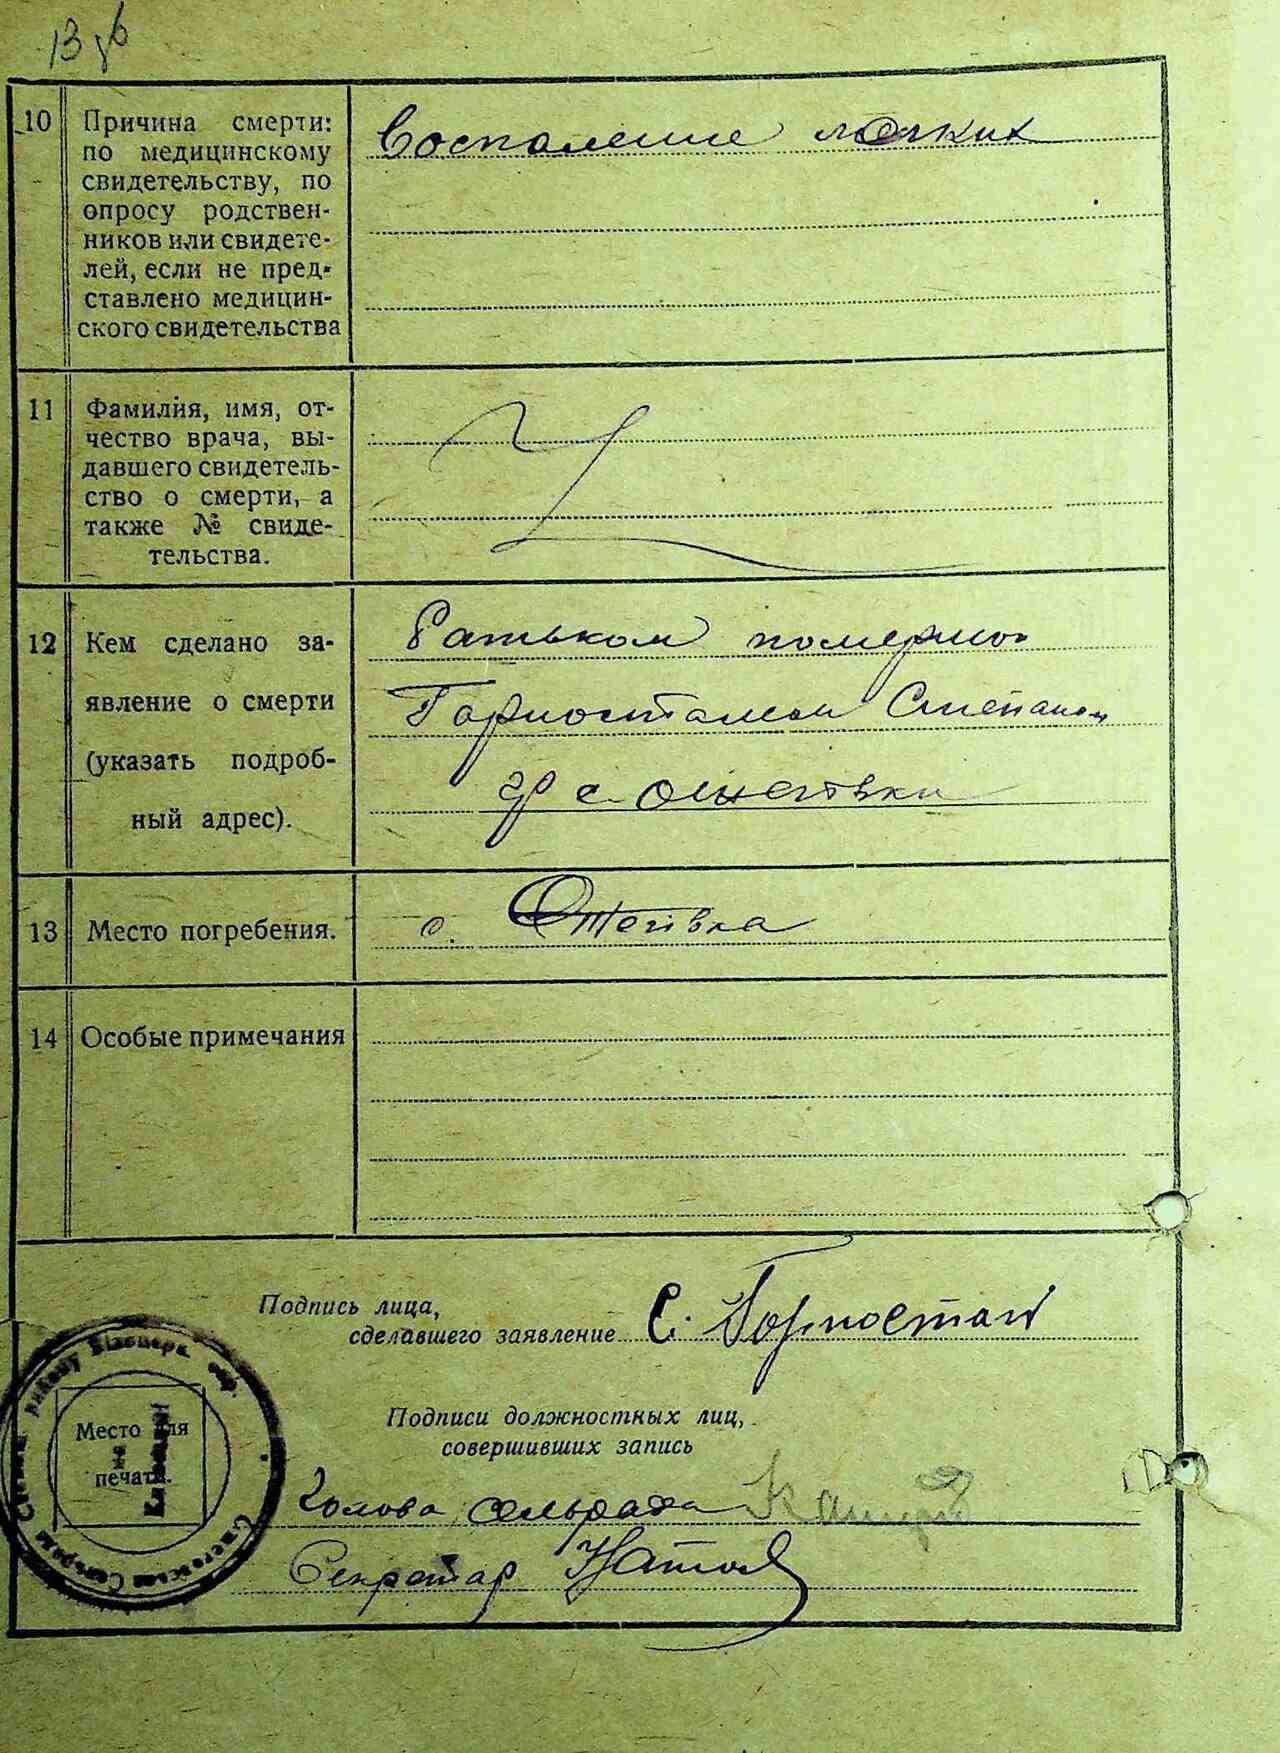 10 Причина смерти:
по медицинскому
свидетельству, по
опросу родствен-
ников или свидете-
лей, если не пред-
ставлено медицин-
ского свидетельства
Воспаление легких
11 Фамилия, имя, от-
чество врача, вы-
давшего свидетель-
ство о смерти, а
также № свиде-
тельства.
12 Кем сделано за-
явление о смерти
(указать подроб-
ный адрес).
Батьком
Горностаем Степаном
гр с
13 Место погребения.
с.
14 Особые примечания
Подпись лица,
сделавшего заявление С. Горностай
Подписи должностных лиц,
совершивших запись
Место для
печати.
Голова сельрада
Секретар